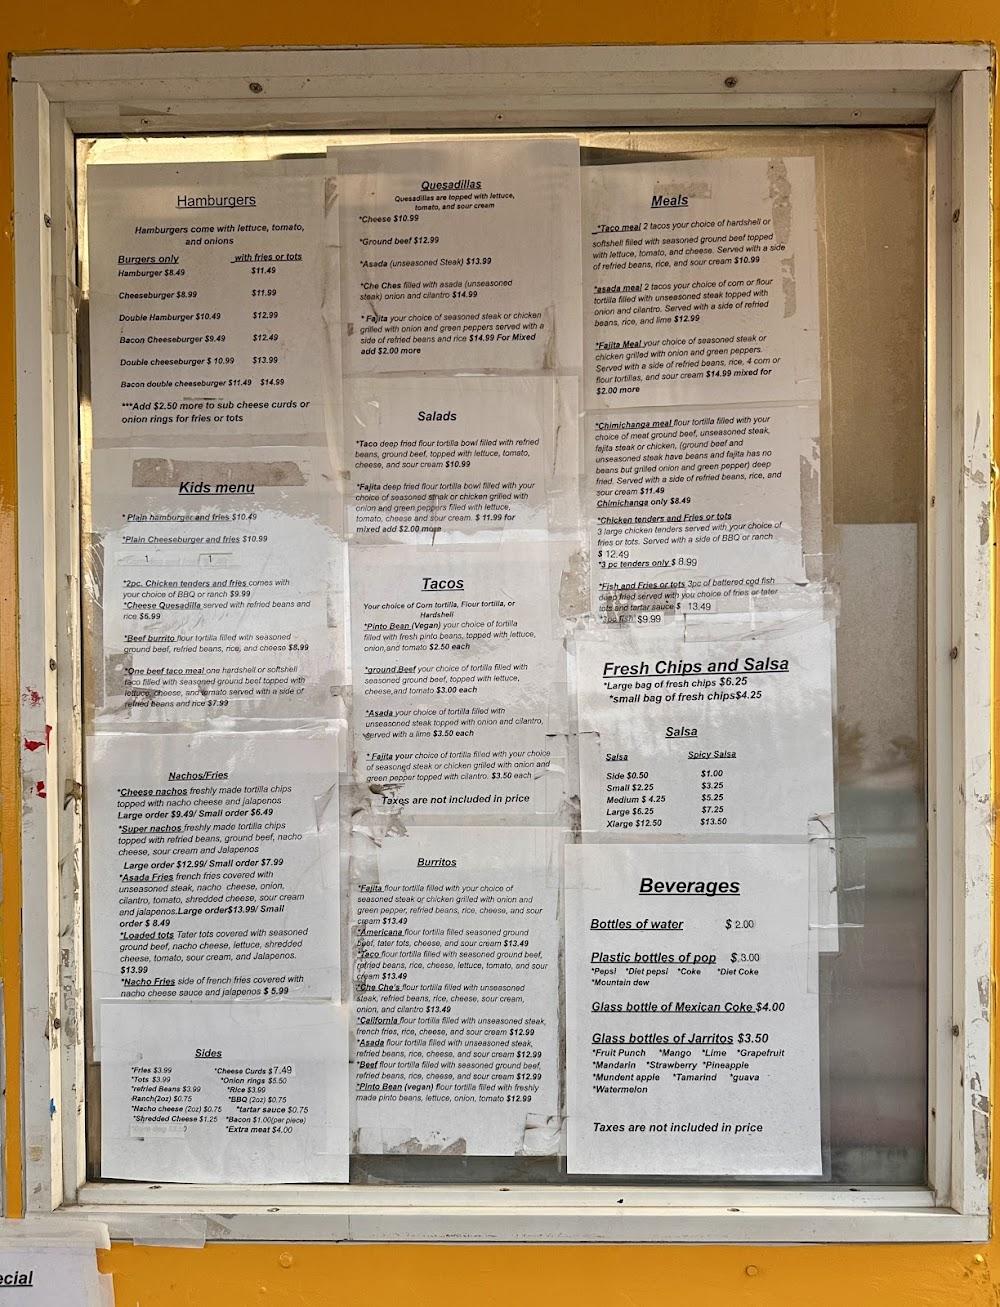 Hamburgers
Hamburgers come with lettuce, tomato,
and onions
Burgers only with fries or tots
Hamburger $8.49 $11.49
Cheeseburger $8.99 $11.99
Double Hamburger $10.49 $12.99
Bacon Cheeseburger $9.49 $12.49
Double cheeseburger $ 10.99 $13.99
Bacon double cheeseburger $11.49 $14.99
***Add $2.50 more to sub cheese curds or
onion rings for fries or tots
Kids menu
* Plain hamburger and fries $10.49
*Plain Cheeseburger and fries $10.99
1 1
*2pc. Chicken tenders and fries comes with
your choice of BBQ or ranch $9.99
*Cheese Quesadilla served with refried beans and
rice $6.99
*Beef burrito flour tortilla filled with seasoned
ground beef, refried beans, rice, and cheese $8.99
*One beef taco meal one hardshell or softshell
taco filled with seasoned ground beef topped with
lettuce, cheese, and tomato served with a side of
refried beans and rice $7.99
Nachos/Fries
*Cheese nachos freshly made tortilla chips
topped with nacho cheese and jalapenos
Large order $9.49/ Small order $6.49
*Super nachos freshly made tortilla chips
topped with refried beans, ground beef, nacho
cheese, sour cream and Jalapenos
Large order $12.99/ Small order $7.99
*Asada Fries french fries covered with
unseasoned steak, nacho cheese, onion,
cilantro, tomato, shredded cheese, sour cream
and jalapenos.Large order$13.99/ Small
order $ 8.49
*Loaded tots Tater tots covered with seasoned
ground beef, nacho cheese, lettuce, shredded
cheese, tomato, sour cream, and Jalapenos.
$13.99
*Nacho Fries side of french fries covered with
nacho cheese sauce and jalapenos $ 5.99
Sides
*Fries $3.99 *Cheese Curds $7.49
*Tots $3.99 *Onion rings $5.50
*refried Beans $3.99 *Rice $3.99
Ranch(2oz) $0.75 *BBQ (2oz) $0.75
*Nacho cheese (2oz) $0.75 *tartar sauce $0.75
*Shredded Cheese $1.25 *Bacon $1.00(per piece)
*Extra meat $4.00
Quesadillas
Quesadillas are topped with lettuce,
tomato, and sour cream
*Cheese $10.99
*Ground beef $12.99
*Asada (unseasoned Steak) $13.99
*Che Ches filled with asada (unseasoned
steak) onion and cilantro $14.99
* Fajita your choice of seasoned steak or chicken
grilled with onion and green peppers served with a
side of refried beans and rice $14.99 For Mixed
add $2.00 more
Salads
*Taco deep fried flour tortilla bowl filled with refried
beans, ground beef, topped with lettuce, tomato,
cheese, and sour cream $10.99
*Fajita deep fried flour tortilla bowl filled with your
choice of seasoned steak or chicken grilled with
onion and green peppers filled with lettuce,
tomato, cheese and sour cream. $ 11.99 for
mixed add $2.00 more
Tacos
Your choice of Corn tortilla, Flour tortilla, or
Hardshell
*Pinto Bean (Vegan) your choice of tortilla
filled with fresh pinto beans, topped with lettuce,
onion,and tomato $2.50 each
*ground Beef your choice of tortilla filled with
seasoned ground beef, topped with lettuce,
cheese,and tomato $3.00 each
*Asada your choice of tortilla filled with
unseasoned steak topped with onion and cilantro,
served with a lime $3.50 each
* Fajita your choice of tortilla filled with your choice
of seasoned steak or chicken grilled with onion and
green pepper topped with cilantro. $3.50 each
Taxes are not included in price
Burritos
*Fajita flour tortilla filled with your choice of
seasoned steak or chicken grilled with onion and
green pepper, refried beans, rice, cheese, and sour
cream $13.49
*Americana flour tortilla filled seasoned ground
beef, tater tots, cheese, and sour cream $13.49
*Taco flour tortilla filled with seasoned ground beef,
refried beans, rice, cheese, lettuce, tomato, and sour
cream $13.49
*Che Che's flour tortilla filled with unseasoned
steak, refried beans, rice, cheese, sour cream,
onion, and cilantro $13.49
*California flour tortilla filled with unseasoned steak,
french fries, rice, cheese, and sour cream $12.99
*Asada flour tortilla filled with unseasoned steak,
refried beans, rice, cheese, and sour cream $12.99
*Beef flour tortilla filled with seasoned ground beef,
refried beans, rice, cheese, and sour cream $12.99
*Pinto Bean (vegan) flour tortilla filled with freshly
made pinto beans, lettuce, onion, tomato $12.99
Meals
*Taco meal 2 tacos your choice of hardshell or
softshell filled with seasoned ground beef topped
with lettuce, tomato, and cheese. Served with a side
of refried beans, rice, and sour cream $10.99
*asada meal 2 tacos your choice of corn or flour
tortilla filled with unseasoned steak topped with
onion and cilantro. Served with a side of refried
beans, rice, and lime $12.99
*Fajita Meal your choice of seasoned steak or
chicken grilled with onion and green peppers.
Served with a side of refried beans, rice, 4 corn or
flour tortillas, and sour cream $14.99 mixed for
$2.00 more
*Chimichanga meal flour tortilla filled with your
choice of meat ground beef, unseasoned steak,
fajita steak or chicken, (ground beef and
unseasoned steak have beans and fajita has no
beans but grilled onion and green pepper) deep
fried. Served with a side of refried beans, rice, and
sour cream $11.49
Chimichanga only $8.49
*Chicken tenders and Fries or tots
3 large chicken tenders served with your choice of
fries or tots. Served with a side of BBQ or ranch
$ 12.49
*3 pc tenders only $ 8.99
*Fish and Fries or tots 3pc of battered cod fish
deep fried served with you choice of fries or tater
tots and tartar sauce $ 13.49
*3pc fish $9.99
Fresh Chips and Salsa
*Large bag of fresh chips $6.25
*small bag of fresh chips$4.25
Salsa
Salsa Spicy Salsa
Side $0.50 $1.00
Small $2.25 $3.25
Medium $ 4.25 $5.25
Large $6.25 $7.25
Xlarge $12.50 $13.50
Beverages
Bottles of water $ 2.00
Plastic bottles of pop $.3.00
*Pepsi *Diet pepsi *Coke *Diet Coke
*Mountain dew
Glass bottle of Mexican Coke $4.00
Glass bottles of Jarritos $3.50
*Fruit Punch *Mango *Lime *Grapefruit
*Mandarin *Strawberry *Pineapple
*Mundent apple *Tamarind *guava
*Watermelon
Taxes are not included in price
ecial